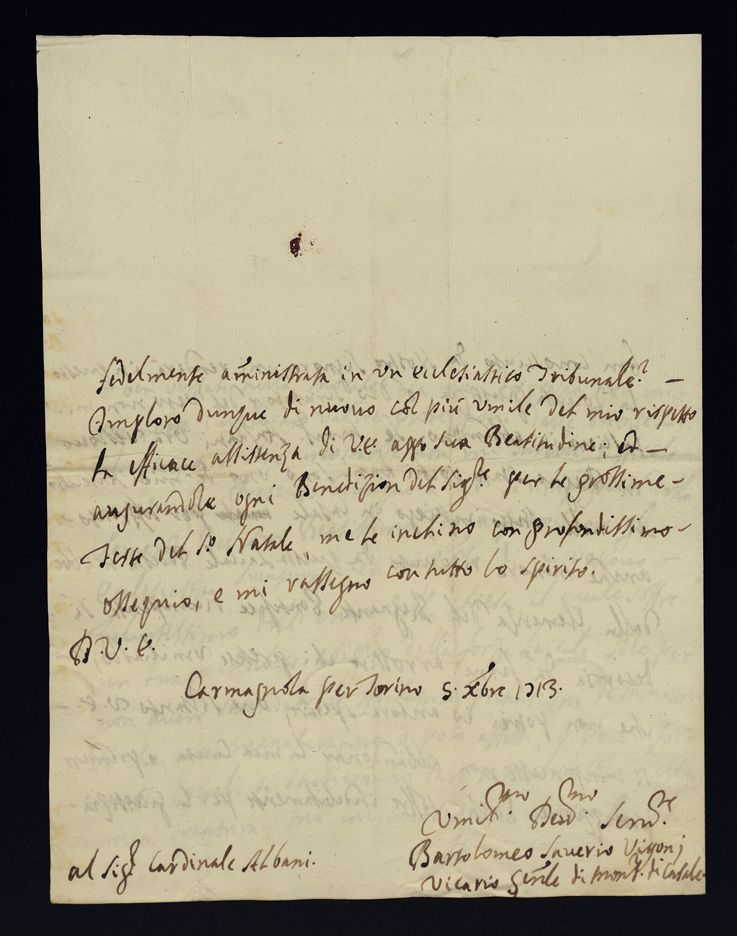 fedelmente am̃inistrata in un ecclesiastico Tribunale? —
Imploro dunque di nuovo col più umile del mio rispetto
la efficace assistenza di V.E. app.o Sua Beatitudine; ed —
augurandole ogni Benedizion del Sig.re per le prossime –
Feste del S.o Natale, me le inchino con profondissimo –
ossequio, e mi rassegno con tutto lo spirito.
D. V. E.
Carmagnola per Torino 5. Xbre 1713.
Umil.mo Dev.mo Serv.re
Bartolomeo Saverio
Vicario Gen̄le di Monf.to di Casale
al Sig.r Cardinale Albani.